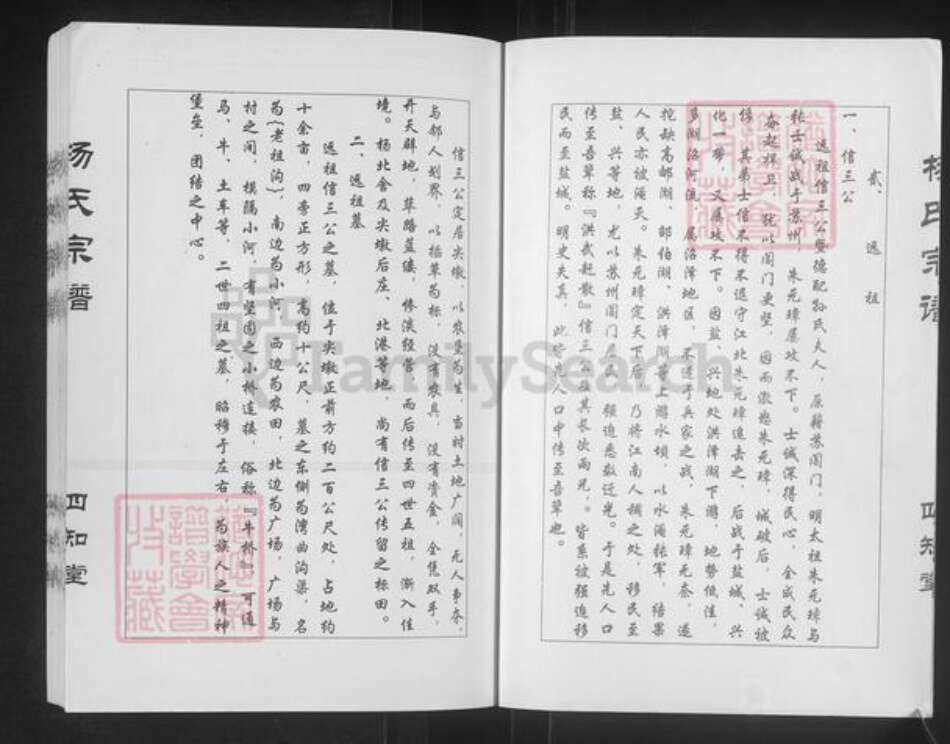 杨氏宗谱
四知堂
贰、远祖
一、信三公
远祖信三公暨德配孙氏夫人，原籍苏阊门，明太祖朱元璋与
张士诚战于苏州，朱元璋屡攻不下。士诚深得民心，全城民众
奋起捍卫，犹以阊门更坚，因而激怒朱元璋，城破后，士诚被
俘，其弟士信不得不退守江北朱元璋追击之，后战于盐城、兴
化一带，又屡攻不下。因盐、兴地处洪泽湖下游，地势低洼，
多湖沼河流，属沼泽地区，不适于兵家之战，朱元璋无奈，遂
挖缺高邮湖、邵伯湖、洪泽湖等上游水坝，以水淹张军，结果
人民亦被淹灭。朱元璋定天下后，乃将江南人稠之处，移民至
盐、兴等地，尤以苏州阊门居民，强迫悉数迁光。于是先人口
传至吾辈称『洪武赶散』信三公及其长次两兄，皆系被强迫移
民而至盐城。明史失真，此皆先人口中传至吾辈也。
信三公定居尖墩，以农垦为生，当时土地广阔，无人争夺，
与邻人划界，以插草为标，没有农具，没有资金，全凭双手，
开天辟地，荜路蓝缕，惨淡经营，而后传至四世五祖，渐入佳
境。杨北舍及尖墩后庄、北港等地，尚有信三公传留之标田。
二、远祖墓
远祖信三公之墓，位于尖墩正前方约二百公尺处，占地约
十余亩，四旁正方形，高约十公尺，墓之东侧为湾曲沟渠，名
为(老祖沟)，南边为小河，西边为农田，北边为广场，广场与
村之间，横隔小河，有坚固之小桥连接，俗称『牛桥』，可通
马、牛、土车等，二世四祖之墓，昭穆于左右，为族人之精神
堡垒，团结之中心。
杨氏宗谱
四知堂
FamilySearch